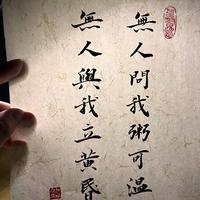 無人問我粥可溫
無人與我立黃昏